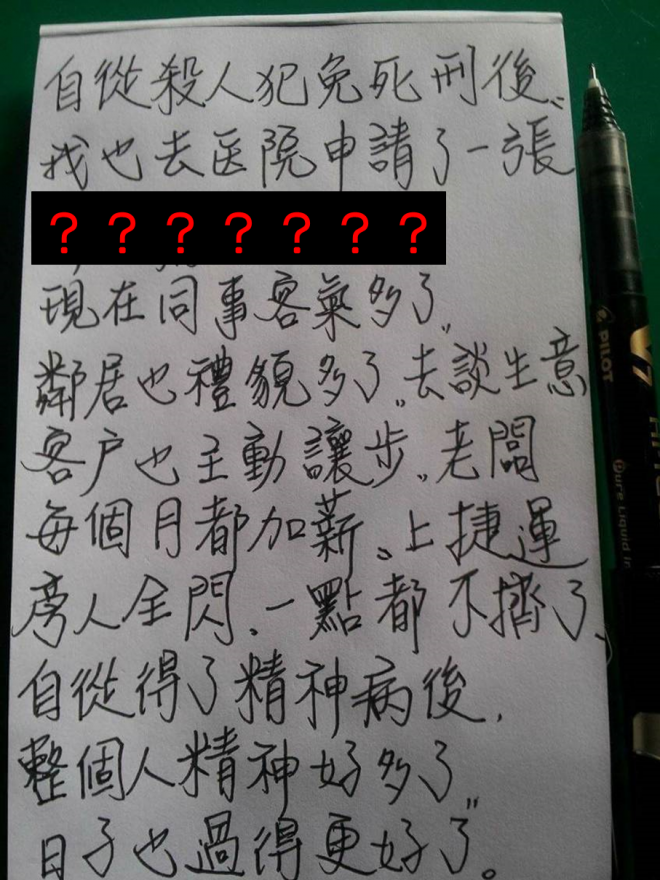 自從殺人犯免死刑後、
我也去医院申請了一張
？？？？？？？
現在同事客氣多了,
鄰居也禮貌多了,去談生意
客戶也主動讓步,老闆
每個月都加薪、上捷運
旁人全閃,一點都不擠了、
自從得了精神病後,
整個人精神好多了,
日子也過得更好了。
PILOT
V7
Pure Liquid In